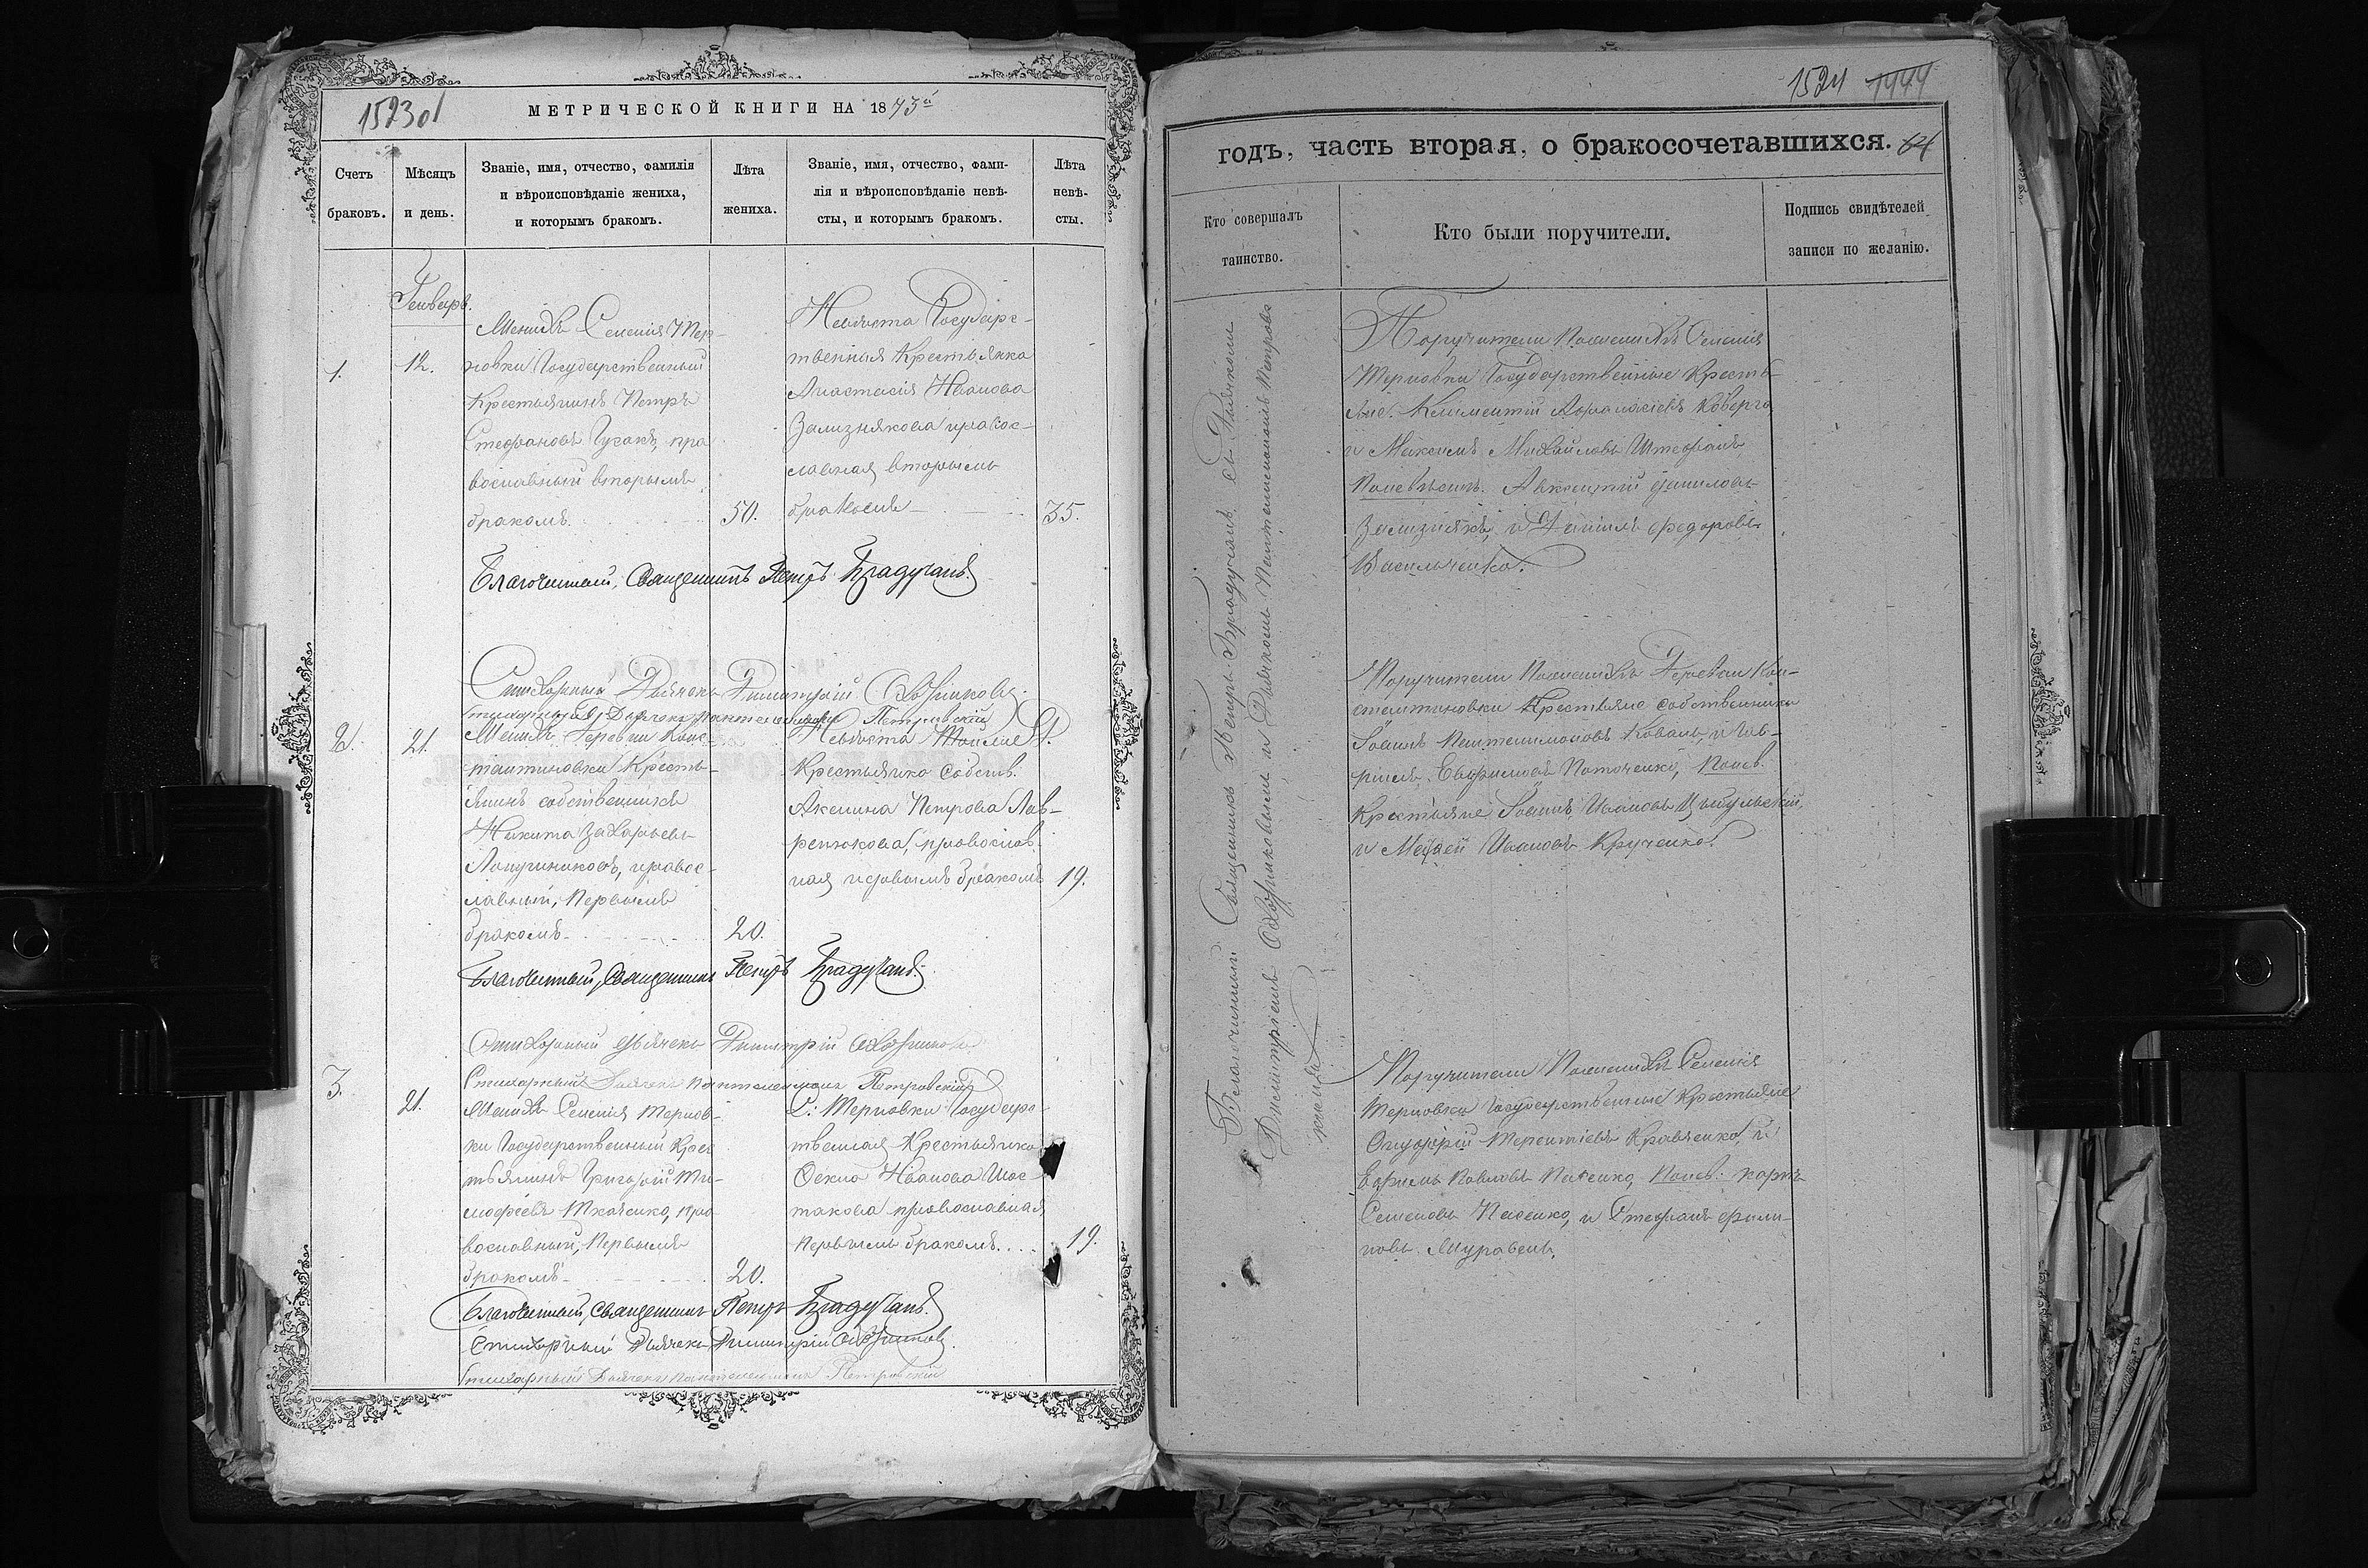 1523об
МЕТРИЧЕСКОЙ КНИГИ НА 1873й
Счетъ браковъ.
Мѣсяцъ и день.
Званіе, имя, отчество, фамилія
и вѣроисповѣданіе жениха,
и которымъ бракомъ.
Лѣта жениха.
Званіе, имя, отчество, фами-
лія и вѣроисповѣданіе невѣ-
сты, и которымъ бракомъ.
Лѣта невѣ-сты.
Генварь.
1.
12.
Женихъ Селенія Тер-
новки Государственный
Крестьянинъ Петръ
Стефановъ Гусакъ, пра
вославный вторымъ
бракомъ.
50.
Невѣста Государс-
твенная Крестьянка
Анастасія Иванова
Зализнякова правос-
лавная вторымъ
бракомъ
35.
Благочинный, Священникъ Петръ Брадучанъ.
Стихарный Дьячекъ Димитрій
Стихарный Дьячекъ Пантелеимонъ Петровскій
2.
21.
Женихъ Деревни Конс-
тантиновки Кресть-
янинъ собственникъ
Никита Захарьевъ
правос-
лавный, Первымъ
бракомъ.
20.
Невѣста
Крестьянка Собств.
Акилина Петрова Лав-
ренюкова, православ-
ная первымъ бракомъ
19.
Благочинный, Священникъ Петръ Брадучанъ.
Стихарный Дьячекъ Димитрій
Стихарный Дьячекъ Пантелеимонъ Петровскій
3.
21.
Женихъ Селенія Тернов-
ки Государственный Крес
тьянинъ Григорій Ти-
мофеевъ Ткаченко, пра
вославный, Первымъ
бракомъ
20.
С: Терновки Государс-
твенная Крестьянка
Иванова Шос-
такова православная
Первымъ бракомъ
19.
Благочинный, Священникъ Петръ Брадучанъ.
Стихарный Дьячекъ Димитрій
Стихарный Дьячекъ Пантелеимонъ Петровскій
1524
годъ, часть вторая, о бракосочетавшихся. 64
Кто совершалъ таинство.
Кто были поручители.
Подпись свидѣтелей записи по желанію.
Благочинный Священникъ Петръ Брадучанъ съ Дьячкомъ
Димитріемъ и Дьячкомъ Пантелеимономъ Петров
скимъ
Поручители По женихѣ Селенія
Терновки Государственные Кресть-
яне. Климентій Афанасіевъ Коверга
и Максимъ Михайловъ Штефанъ
По невѣстѣ. Авксентій Даниловъ
Зализнякъ, и Даніилъ Федоровъ
Васильченко.
Поручители По женихѣ Деревни Кон-
стантиновки Крестьяне Собственники
Іоаннъ Пантелимоновъ Коваль, и Гав-
риилъ Евфимовъ Поточенко, По нев.
Крестьяне Іоаннъ Ивановъ Цыбульскій,
и Ивановъ Крученко.
Поручители По женихѣ Селенія
Терновки Государственные Крестьяне
Онуфрій Терентіевъ Кравченко, и
Ефимъ Павловъ Пасенко, По нев: Карпъ
Семеновъ Пасенко, и Стефанъ Фили-
повъ Муравель.